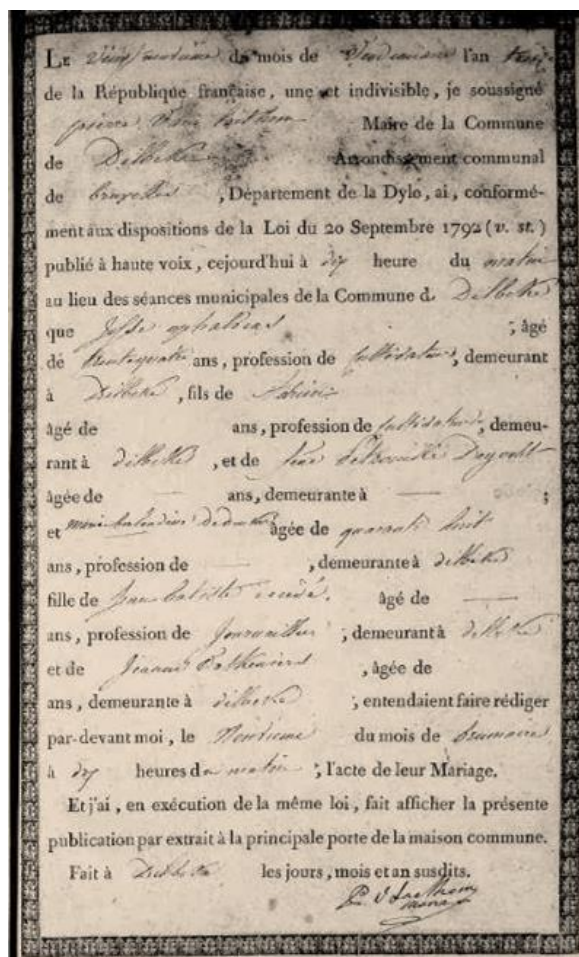 LE du mois de l'an
de la République française, une et indivisible, je soussigné
pierre Maire de la Commune
de Dilbeke Arrondissement communal
de bruxelles, Département de la Dyle, ai, conformé-
ment aux dispositions de la Loi du 20 Septembre 1792 (v. st.)
publié à haute voix, cejourd'hui à dix heure du matin
au lieu des séances municipales de la Commune d. Dilbeke
que ; âgé
de trentequatre ans, profession de cultivateur, demeurant
à Dilbeke, fils de Adrien
âgé de ans, profession de cultivateur, demeu-
rant à dilbeke, et de
âgée de — ans, demeurante à — ;
et âgée de quarante huit
ans, profession de —, demeurante à dilbeke
fille de Jean batiste âgé de —
ans, profession de Journaillier ; demeurant à dilbeke
et de Jeanne , âgée de
ans, demeurante à dilbeke ; entendaient faire rédiger
par-devant moi, le du mois de brumaire
à dix heures du matin ; l'acte de leur Mariage.
Et j'ai, en exécution de la même loi, fait afficher la présente
publication par extrait à la principale porte de la maison commune.
Fait à Dilbeke les jours, mois et an susdits.